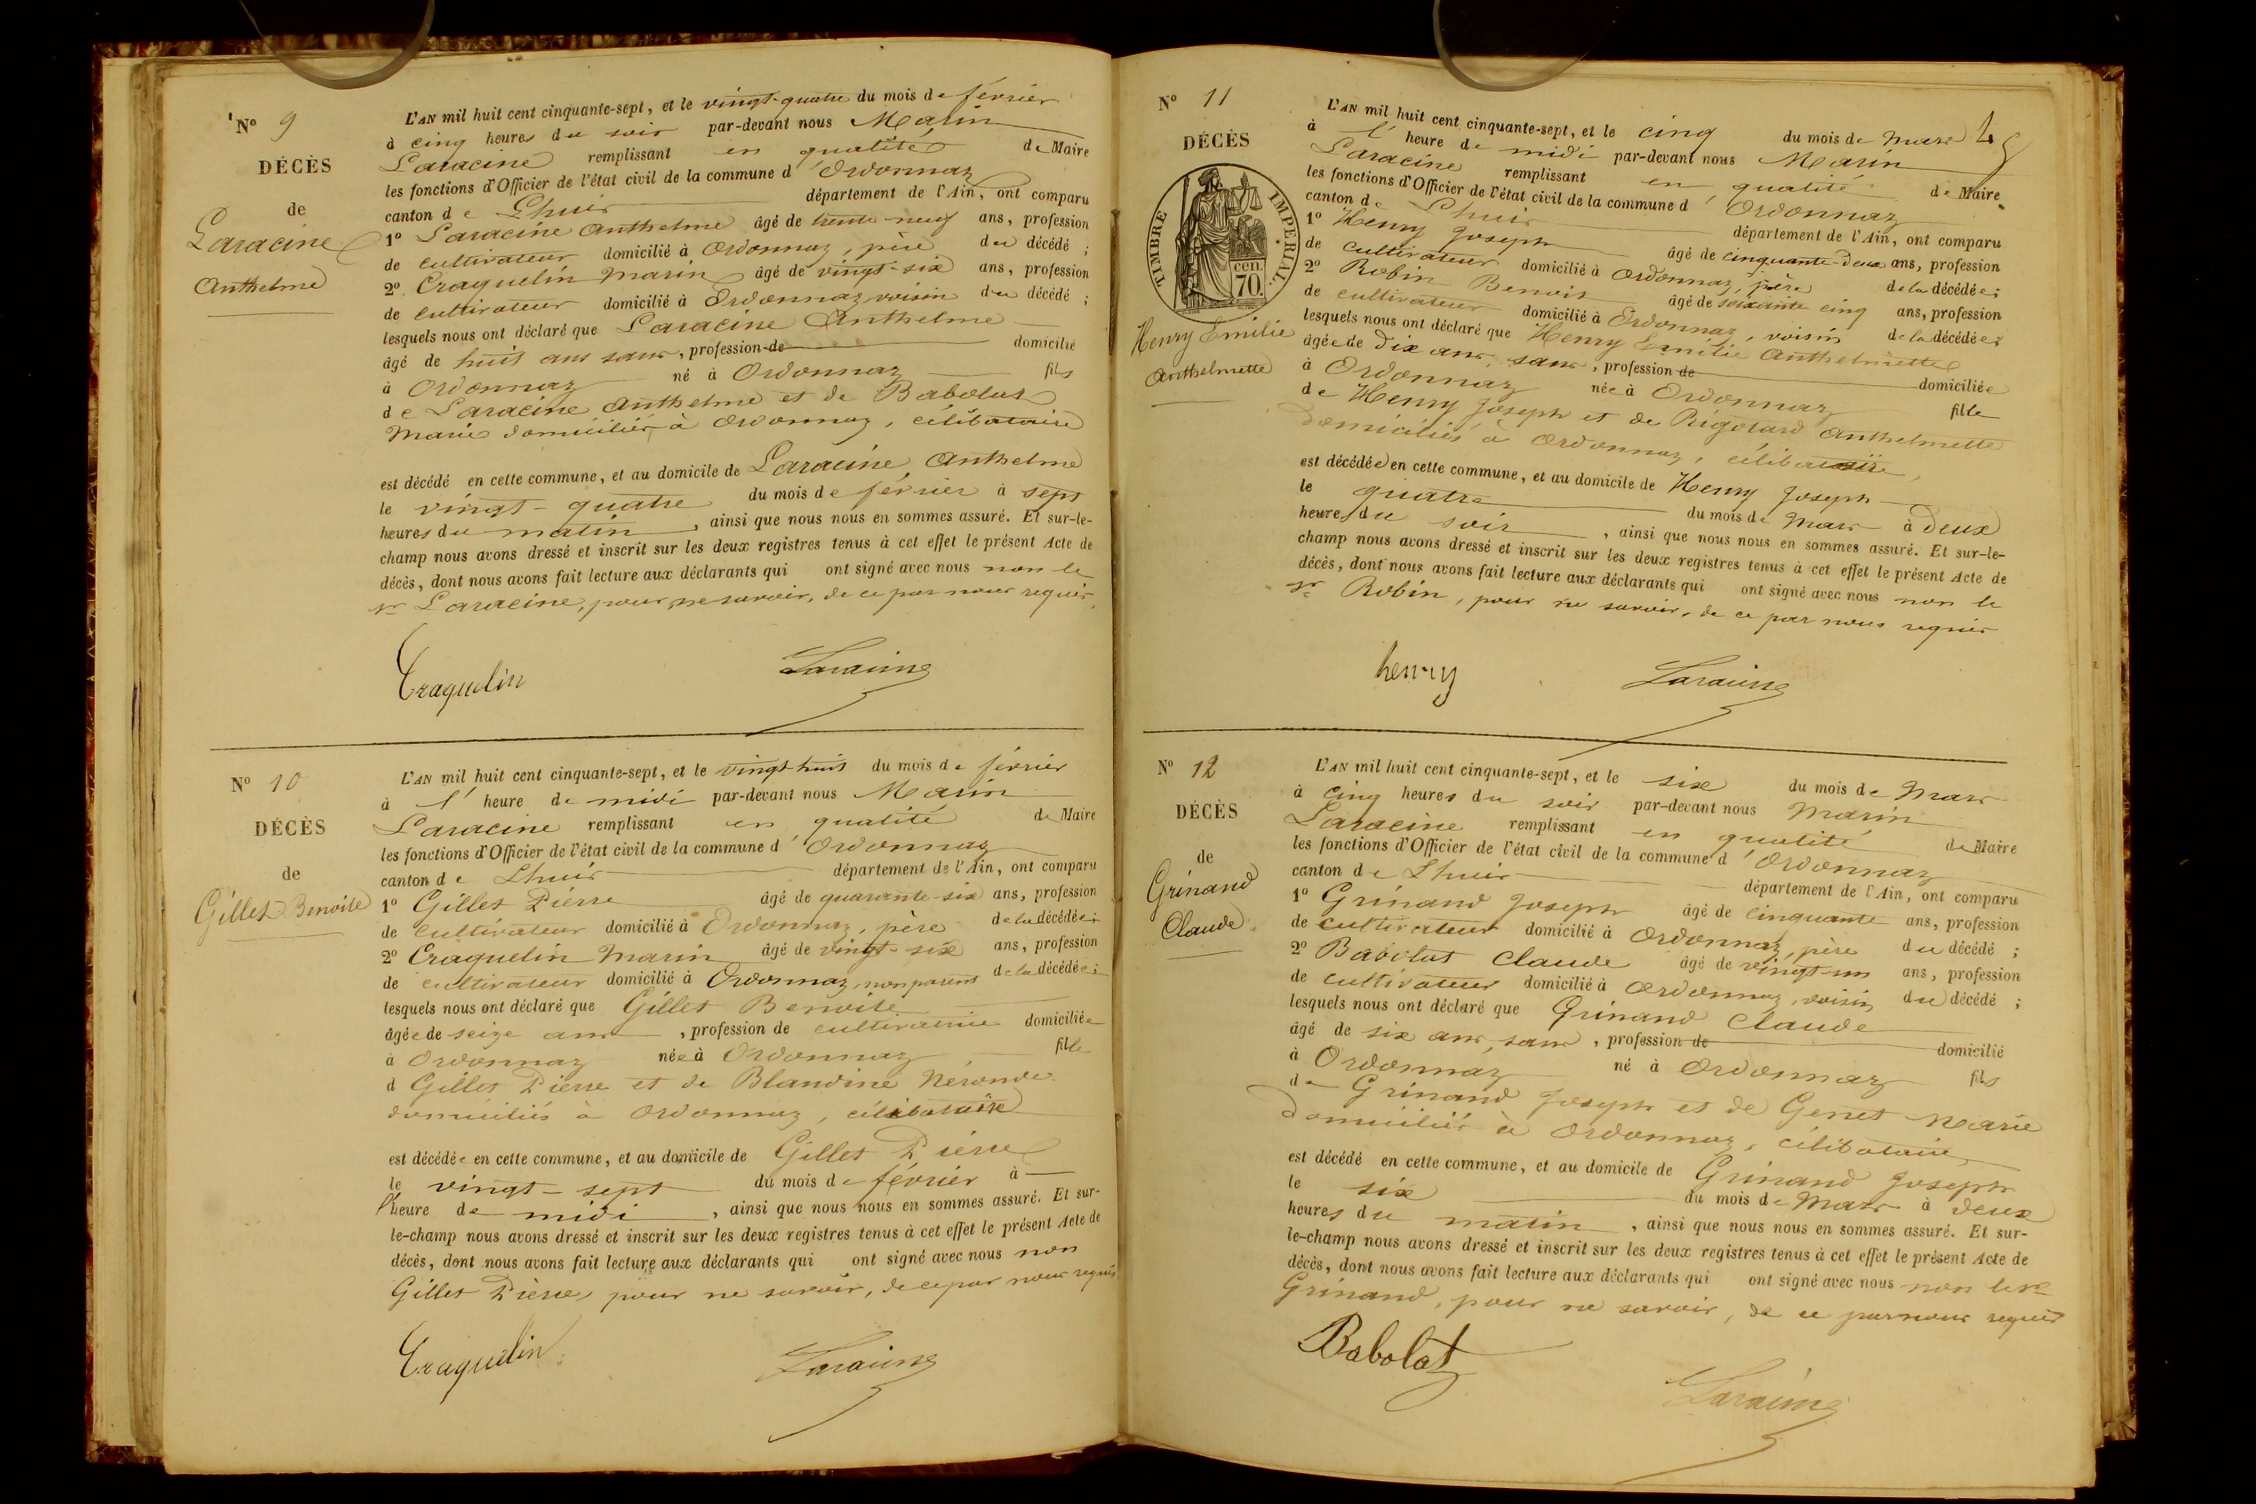 N° 9
DÉCÈS
de
Laracine
Anthelme
L'AN mil huit cent cinquante-sept, et le vingt-quatre du mois de février
à cinq heures du soir par-devant nous Marin
Laracine remplissant en qualité de Maire
les fonctions d'Officier de l'état civil de la commune d'Ordonnaz
canton de Lhuis département de l'Ain, ont comparu
1° Laracine Anthelme âgé de trente-neuf ans, profession
de cultivateur domicilié à Ordonnaz, père du décédé ;
2° Craquelin Marin âgé de vingt-six ans, profession
de cultivateur domicilié à Ordonnaz, voisin du décédé ;
lesquels nous ont déclaré que Laracine Anthelme
âgé de huit ans sans, profession de domicilié
à Ordonnaz né à Ordonnaz fils
de Laracine Anthelme et de Babolat
Marie domiciliés à Ordonnaz, célibataire
est décédé en cette commune, et au domicile de Laracine Anthelme
le vingt-quatre du mois de février à sept
heures du matin, ainsi que nous nous en sommes assuré. Et sur-le-
champ nous avons dressé et inscrit sur les deux registres tenus à cet effet le présent Acte de
décès, dont nous avons fait lecture aux déclarants qui ont signé avec nous non le
sr Laracine, pour ne savoir, de ce par nous requis.
Craquelin Laracine
N° 10
DÉCÈS
de
Gillet Benoite
L'AN mil huit cent cinquante-sept, et le vingt-huit du mois de février
à l'heure de midi par-devant nous Marin
Laracine remplissant en qualité de Maire
les fonctions d'Officier de l'état civil de la commune d'Ordonnaz
canton de Lhuis département de l'Ain, ont comparu
1° Gillet Pierre âgé de quarante-six ans, profession
de cultivateur domicilié à Ordonnaz, père de la décédée ;
2° Craquelin Marin âgé de vingt-six ans, profession
de cultivateur domicilié à Ordonnaz, non parent de la décédée ;
lesquels nous ont déclaré que Gillet Benoite
âgée de seize ans, profession de cultivatrice domiciliée
à Ordonnaz née à Ordonnaz, fille
d Gillet Pierre et de Blandine
domiciliés à Ordonnaz, célibataire
est décédée en cette commune, et au domicile de Gillet Pierre
le vingt-sept du mois de février à
l'heure de midi, ainsi que nous nous en sommes assuré. Et sur-
le-champ nous avons dressé et inscrit sur les deux registres tenus à cet effet le présent Acte de
décès, dont nous avons fait lecture aux déclarants qui ont signé avec nous non
Gillet Pierre pour ne savoir, de ce par nous requis
Craquelin Laracine
N° 11
DÉCÈS
TIMBRE IMPÉRIAL
CEN.
70
Henry Emilie
Anthelmette
L'AN mil huit cent cinquante-sept, et le cinq du mois de Mars
à l'heure de midi par-devant nous Marin
Laracine remplissant en qualité de Maire
les fonctions d'Officier de l'état civil de la commune d'Ordonnaz
canton de Lhuis département de l'Ain, ont comparu
1° Henry Joseph âgé de cinquante-deux ans, profession
de cultivateur domicilié à Ordonnaz, père de la décédée ;
2° Robin Benoit âgé de soixante cinq ans, profession
de cultivateur domicilié à Ordonnaz, voisin de la décédée ;
lesquels nous ont déclaré que Henry Emilie Anthelmette
âgée de dix ans, sans, profession de domiciliée
à Ordonnaz née à Ordonnaz fille
de Henry Joseph et de Rigolard Anthelmette
domiciliés à Ordonnaz, célibataire,
est décédée en cette commune, et au domicile de Henry Joseph
le quatre du mois de Mars à deux
heures du soir, ainsi que nous nous en sommes assuré. Et sur-le-
champ nous avons dressé et inscrit sur les deux registres tenus à cet effet le présent Acte de
décès, dont nous avons fait lecture aux déclarants qui ont signé avec nous non le
sr Robin, pour ne savoir, de ce par nous requis
henry Laracine
N° 12
DÉCÈS
de
Grinand
Claude
L'AN mil huit cent cinquante-sept, et le six du mois de Mars
à cinq heures du soir par-devant nous Marin
Laracine remplissant en qualité de Maire
les fonctions d'Officier de l'état civil de la commune d'Ordonnaz
canton de Lhuis département de l'Ain, ont comparu
1° Grinand Joseph âgé de cinquante ans, profession
de cultivateur domicilié à Ordonnaz, père du décédé ;
2° Babolat Claude âgé de vingt-un ans, profession
de cultivateur domicilié à Ordonnaz, voisin du décédé ;
lesquels nous ont déclaré que Grinand Claude
âgé de six ans, sans, profession de domicilié
à Ordonnaz né à Ordonnaz fils
de Grinand Joseph et de Genet Marie
domiciliés à Ordonnaz, célibataire
est décédé en cette commune, et au domicile de Grinand Joseph
le six du mois de Mars à deux
heures du matin, ainsi que nous nous en sommes assuré. Et sur-
le-champ nous avons dressé et inscrit sur les deux registres tenus à cet effet le présent Acte de
décès, dont nous avons fait lecture aux déclarants qui ont signé avec nous non le sr
Grinand, pour ne savoir, de ce par nous requis
Babolat
Laracine